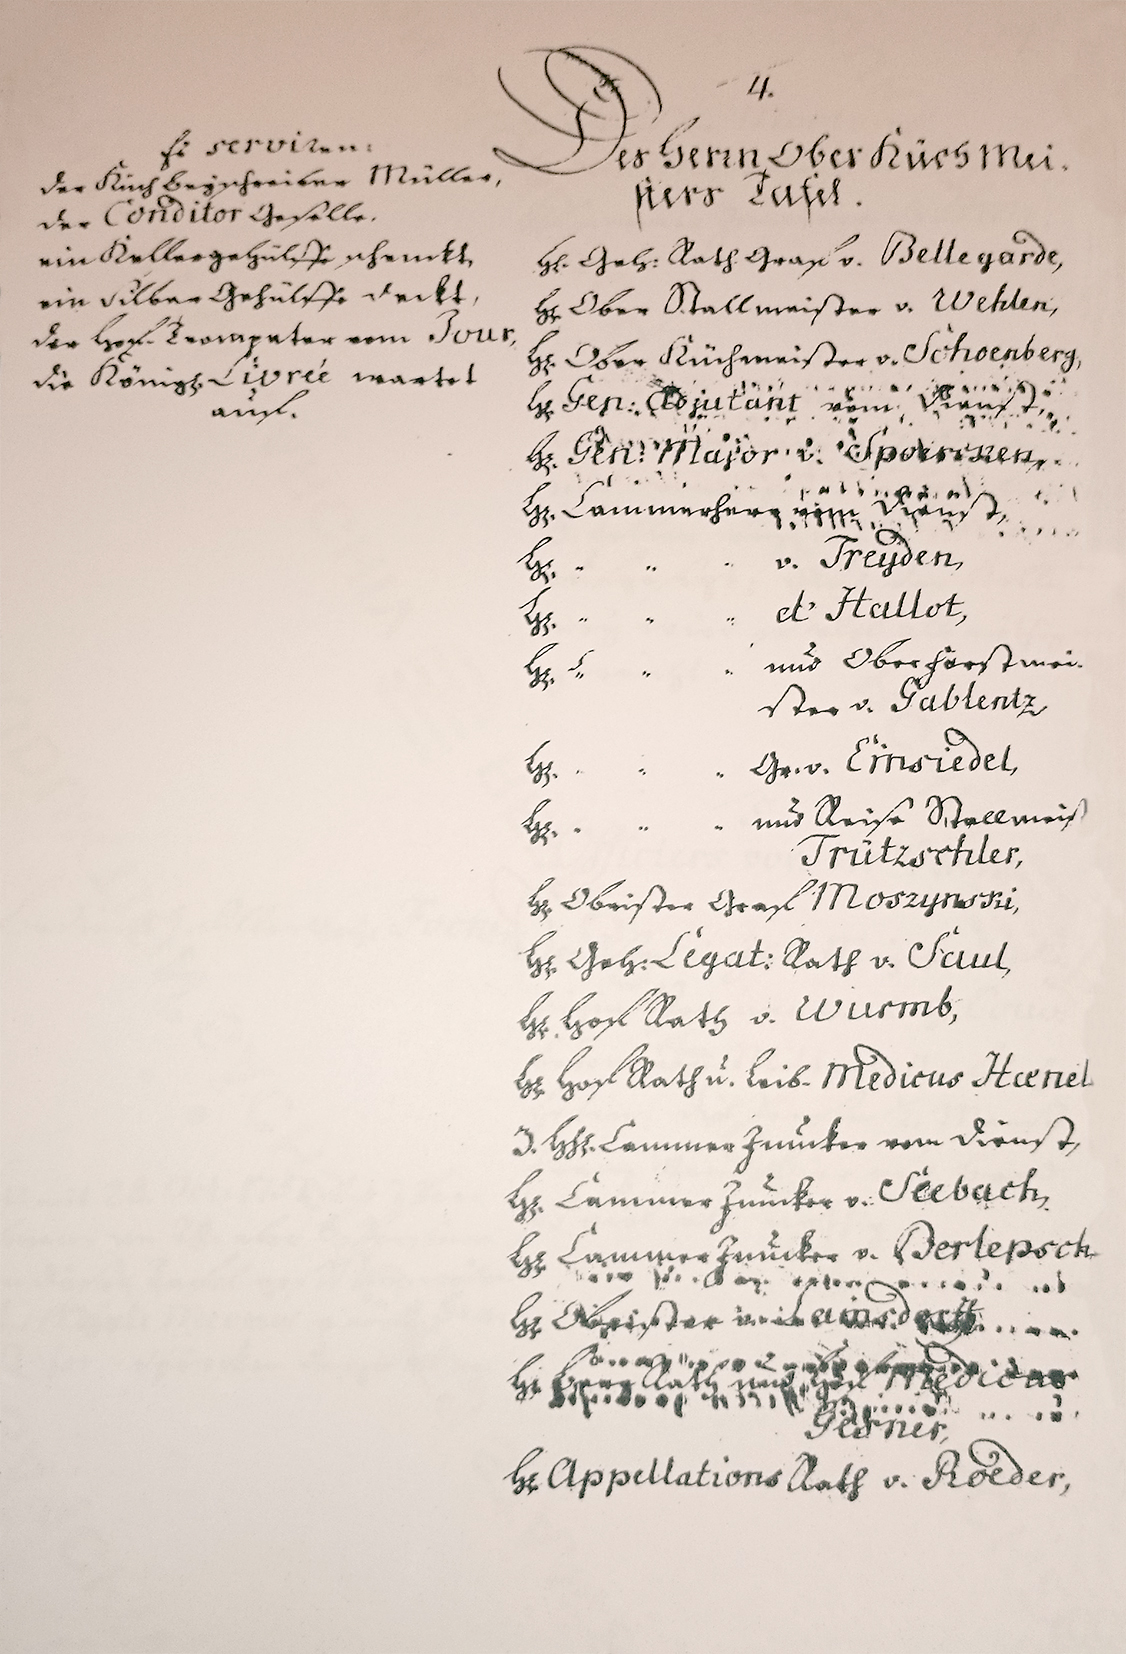 4.
Des Herrn Ober Küch Mei-
sters Tafel.
Es serviren:
der Küchbeyschreiber Müller,
der Conditor Geselle.
ein Kellergehülffe schenckt,
ein Silber Gehülffe deckt,
der Hof-Trompeter vom Jour,
die Königl. Livrée wartet
auf.
Hr. Geh: Rath Graf v. Bellegarde,
Hr. Ober Stallmeister v. Wehlen,
Hr. Ober Küchmeister v. Schoenberg,
Hr. Gen: Adjutant vom Dienst,
Hr. Gen: Major v. Spoercken,
Hr. Cammerherr vom Dienst,
Hr. " " " v. Treyden,
Hr. " " " d' Hallot,
Hr. " " " und Oberforstmei-
ster v. Gablentz,
Hr. " " " Gr. v. Einsiedel,
Hr. " " " und Reise Stallmeist
Trützschler,
Hr. Obrister Graf Moszynski,
Hr. Geh: Legat: Rath v. Saul,
Hr. Hof Rath v. Wurmb,
Hr. Hof Rath u. Leib-Medicus Haenel
3. Hh. Cammer Juncker vom Dienst,
Hr. Cammer Juncker v. Seebach,
Hr. Cammer Juncker v. Berlepsch
Hr. Obrister v. Lamsdorff
Hr. Berg Rath und Hof Medicus
Gesner,
Hr. Appellations Rath v. Roeder,